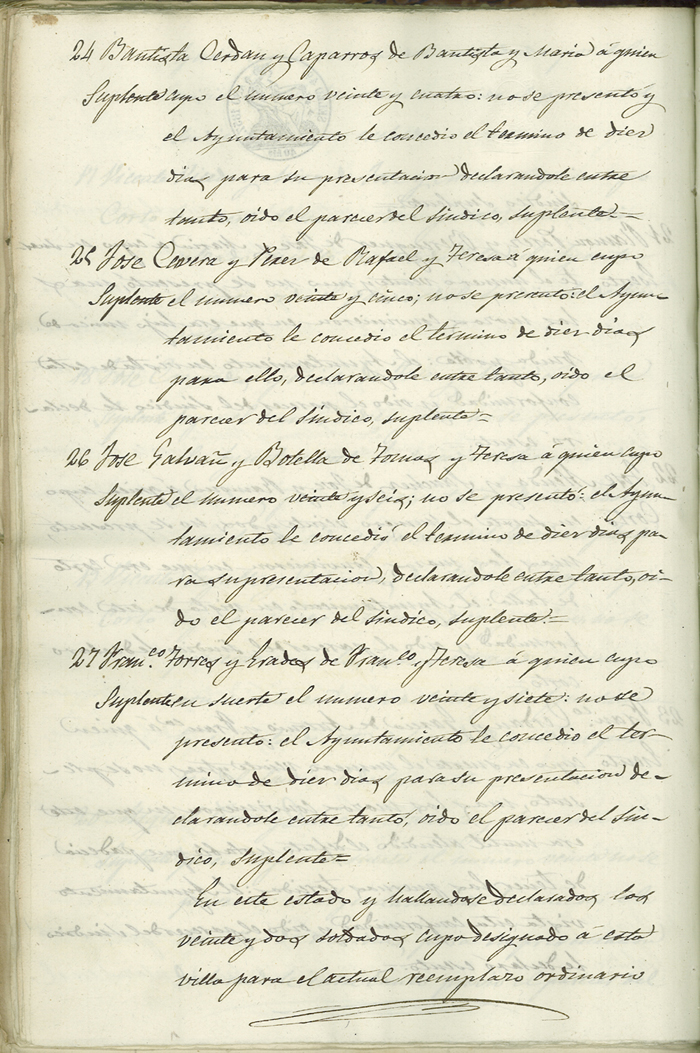 24 Bautista Cerdan y Caparros de Bautista y Maria á quien
Suplente cupo el numero veinte y cuatro: no se presento y
el Ayuntamiento le concedio el termino de diez
dias para su presentacion declarandole entre
tanto, oido el parecer del Sindico, Suplente.=
25 Jose Cervera y Perez de Rafael y Teresa á quien cupo
Suplente el numero veinte y cinco; no se presento: el Ayun-
tamiento le concedio el termino de diez dias
para ello, declarandole entre tanto, oido el
parecer del Sindico, suplente=
26 Jose Galvañ y Botella de Tomas y Teresa á quien cupo
Suplente el numero veinte y seis; no se presentó: el Ayun-
tamiento le concedió el termino de diez dias pa-
ra su presentacion, declarandole entre tanto, oi-
do el parecer del Sindico, suplente.=
27 Fran.co Torres y de Fran.co y Teresa á quien cupo
Suplente en suerte el numero veinte y siete: no se
presento: el Ayuntamiento le concedio el ter-
mino de diez dias para su presentacion de-
clarandole entre tanto, oido el parecer del Sin-
dico, Suplente=
En este estado y hallandose declarados los
veinte y dos soldados cupo designado á esta
villa para el actual reemplazo ordinario